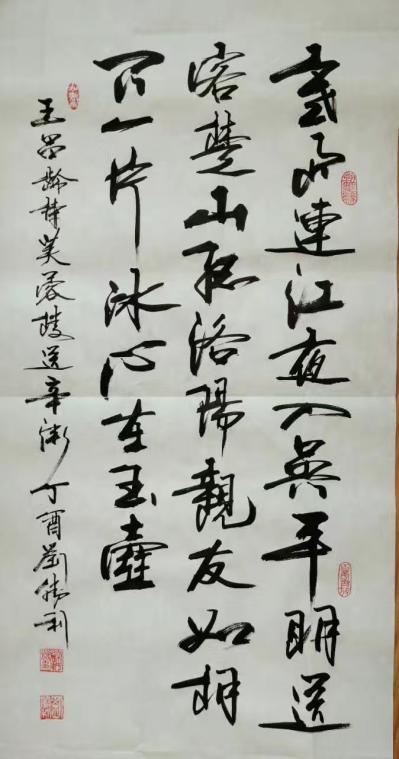 寒雨連江夜入吳平明送
客楚山孤洛陽親友如相
問一片冰心在玉壺
王昌齡詩芙蓉樓送辛漸 丁酉 劉利